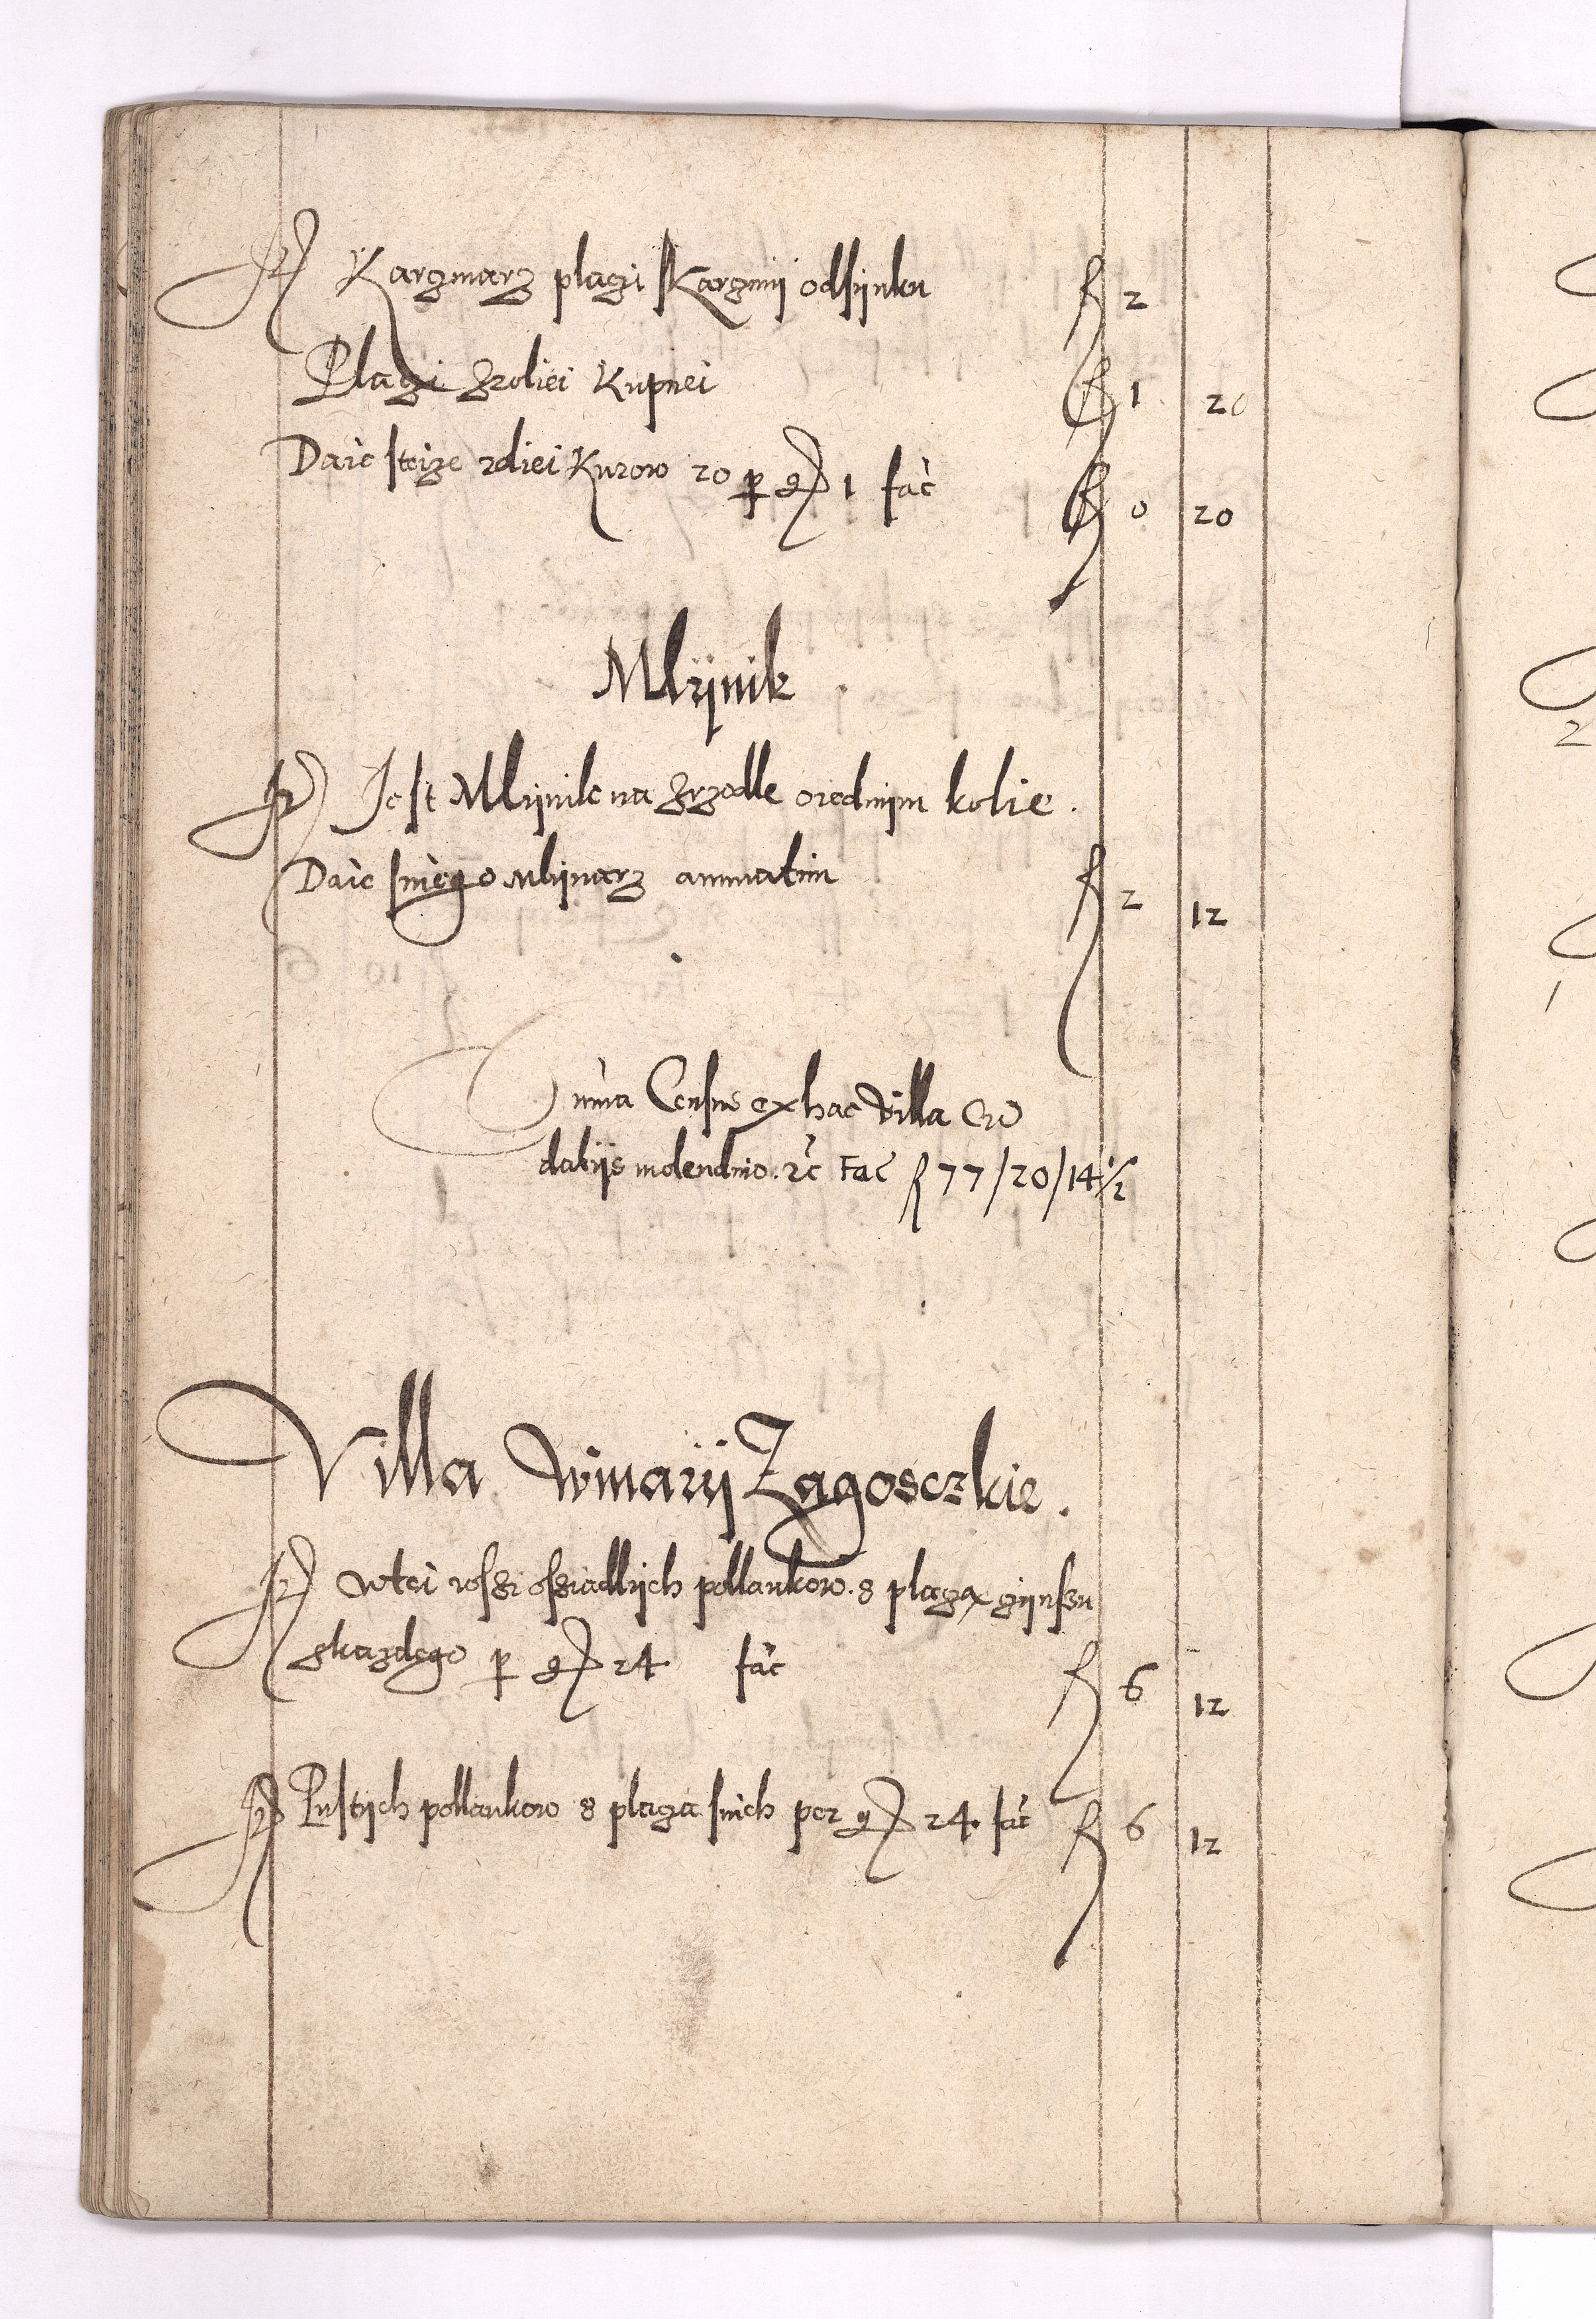 Kargmarz plagi Kargmij odsijnku f 2
Plagi zroliei Kupnei f 1 20
Daie steize rdiei Kurow 20 p g 1 fac f 0 20
Mlijnik
Jest Mlijnik na zrzodle oiednijm kolie.
Daie snięgo Mlijnarz annuatim f 2 12
Suma Census ex hac villa Cu
datijs molendino. rc Fac f 77/20/14½
Villa Winarij Zagosczkie.
wtei wssi ossiadlijch pollankow. 8 plaga gijnssu
zkazdego p g 24 fac f 6 12
Pustijch pollankow 8 plaga snich per g 24. fac f 6 12